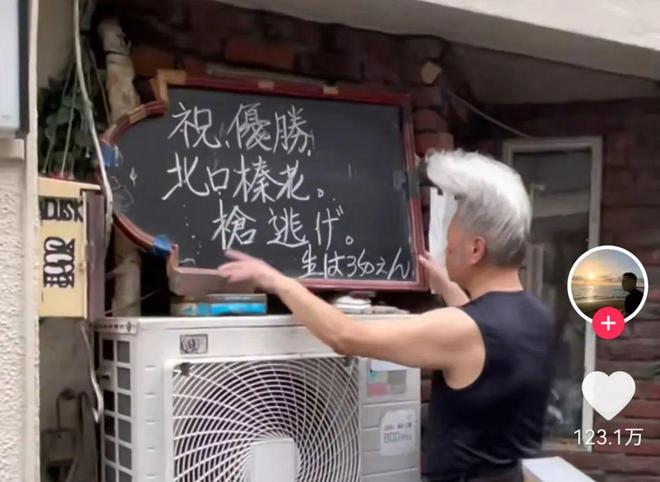 祝.優勝
北口榛花。
槍逃げ。
生は350えん
DUSK
123.1万